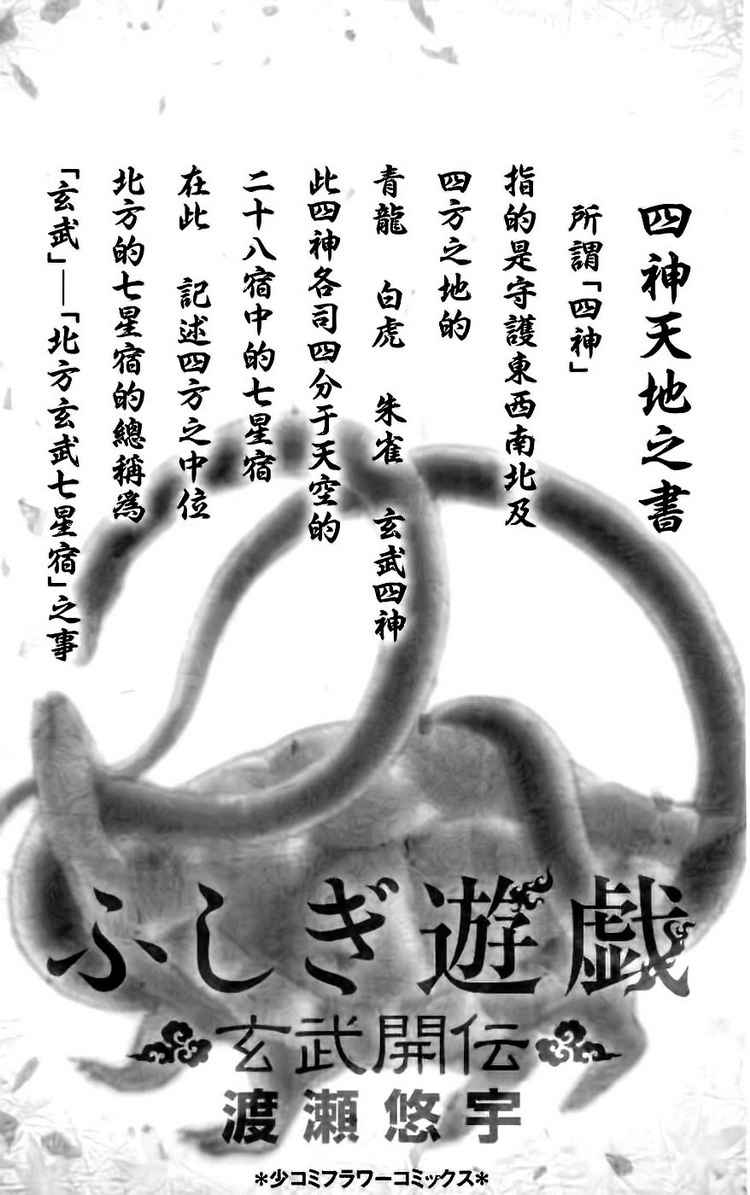 四神天地之書
所謂「四神」
指的是守護東西南北及
四方之地的
青龍　白虎　朱雀　玄武四神
此四神各司四分于天空的
二十八宿中的七星宿
在此　記述四方之中位
北方的七星宿的總稱為
「玄武」—「北方玄武七星宿」之事
ふしぎ遊戯
玄武開伝
渡瀬悠宇
＊少コミフラワーコミックス＊